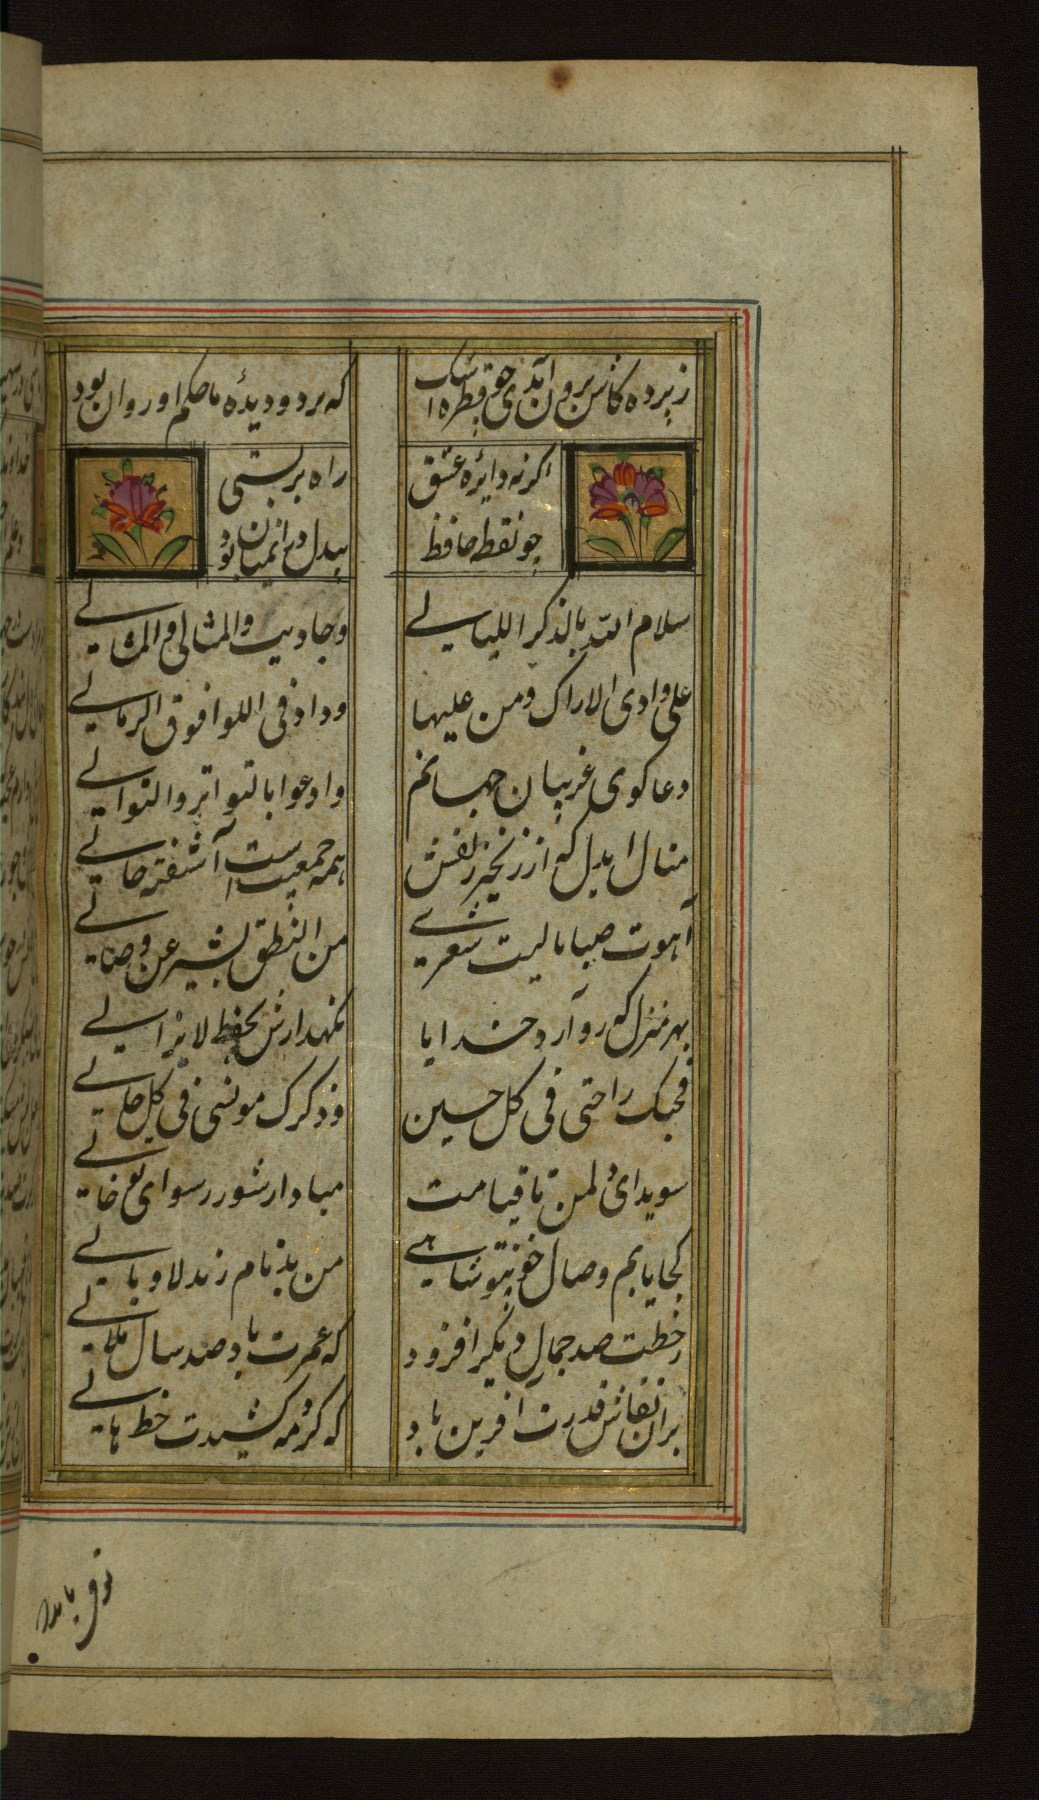 ز پرده کاش برون آمدی چو قطره اشک
که بر دو دیدهٔ ما حکم او روان بود
اگر نه دایره عشق
راه بر بستی
چو نقطه حافظ
بیدل در انمیان بود
سلام الله بالذکر اللیالی
وجاوبت والمثالی والمثانی
علی وادی الاراک ومن علیها
وداد فی اللوا فوق الرمالی
دعا کوی غریبان جهانم
وادعوا بالتواتر والتوالی
منال ایدل که از زنجیر زلفش
همه جمعیت است آشفته حالی
من النطق بشیر عن وصالی
بهر منزل که رو آرد خدایا
نکهدارش بحفظ لایزالی
فحبک راحتی فی کل حین
وذکرک مونسی فی کل حالی
سویدای دلمن تا قیامت
مباد از شور رسوای تو خالی
کجا یابم وصال چون تو شاهی
من بدنام رند لاوبالی
خطت صد جمال دیکر افزود
که عمرت باد صد سال ملالی
بران نقاش قدرت آفرین باد
که کرد مه کشیدت خط هالی